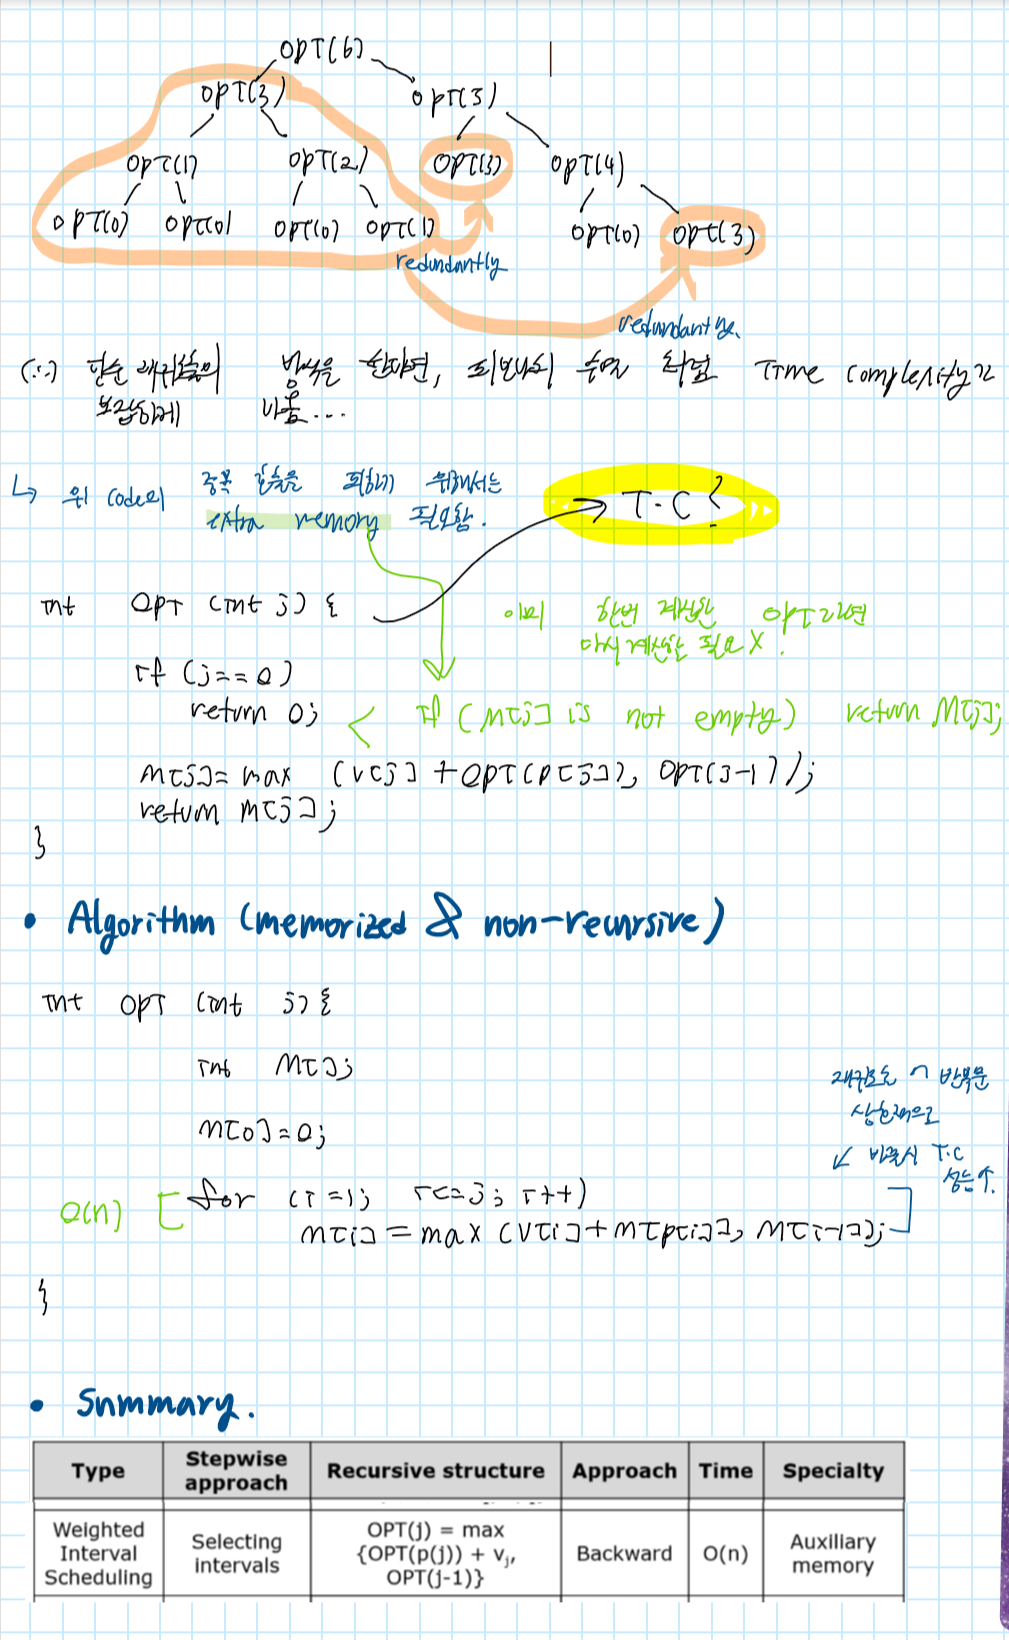 OPT(6)
OPT(3) OPT(5)
OPT(1) OPT(2) OPT(3) OPT(4)
OPT(0) OPT(0) OPT(0) OPT(1) OPT(0) OPT(3)
redundantly
redundantly
(∵) 단순 재귀호출의 방식을 한다면, 피보나치 수열 처럼 Time complexity가
복잡하게 나옴...
↳ 위 code의 중복 호출을 피하기 위해서는
extra memory 필요함.
T.C?
int OPT (int j) {
이미 한번 계산한 OPT라면
다시 계산할 필요 X.
if (j==0)
return 0;
< if (M[j] is not empty) return M[j];
M[j]= max (v[j] + OPT(p[j]), OPT(j-1));
return M[j];
}
• Algorithm (memorized & non-recursive)
int OPT (int j) {
int M[];
M[0]=0;
재귀호출 → 반복문
상향식으로
↙ 바꿀시 T.C
성능↑.
O(n) [ for (i=1; i<=j; i++)
M[i] = max (v[i]+M[p[i]], M[i-1]);
}
• Summary.
Type Stepwise approach Recursive structure Approach Time Specialty
Weighted Interval Scheduling Selecting intervals OPT(j) = max {OPT(p(j)) + vj, OPT(j-1)} Backward O(n) Auxiliary memory